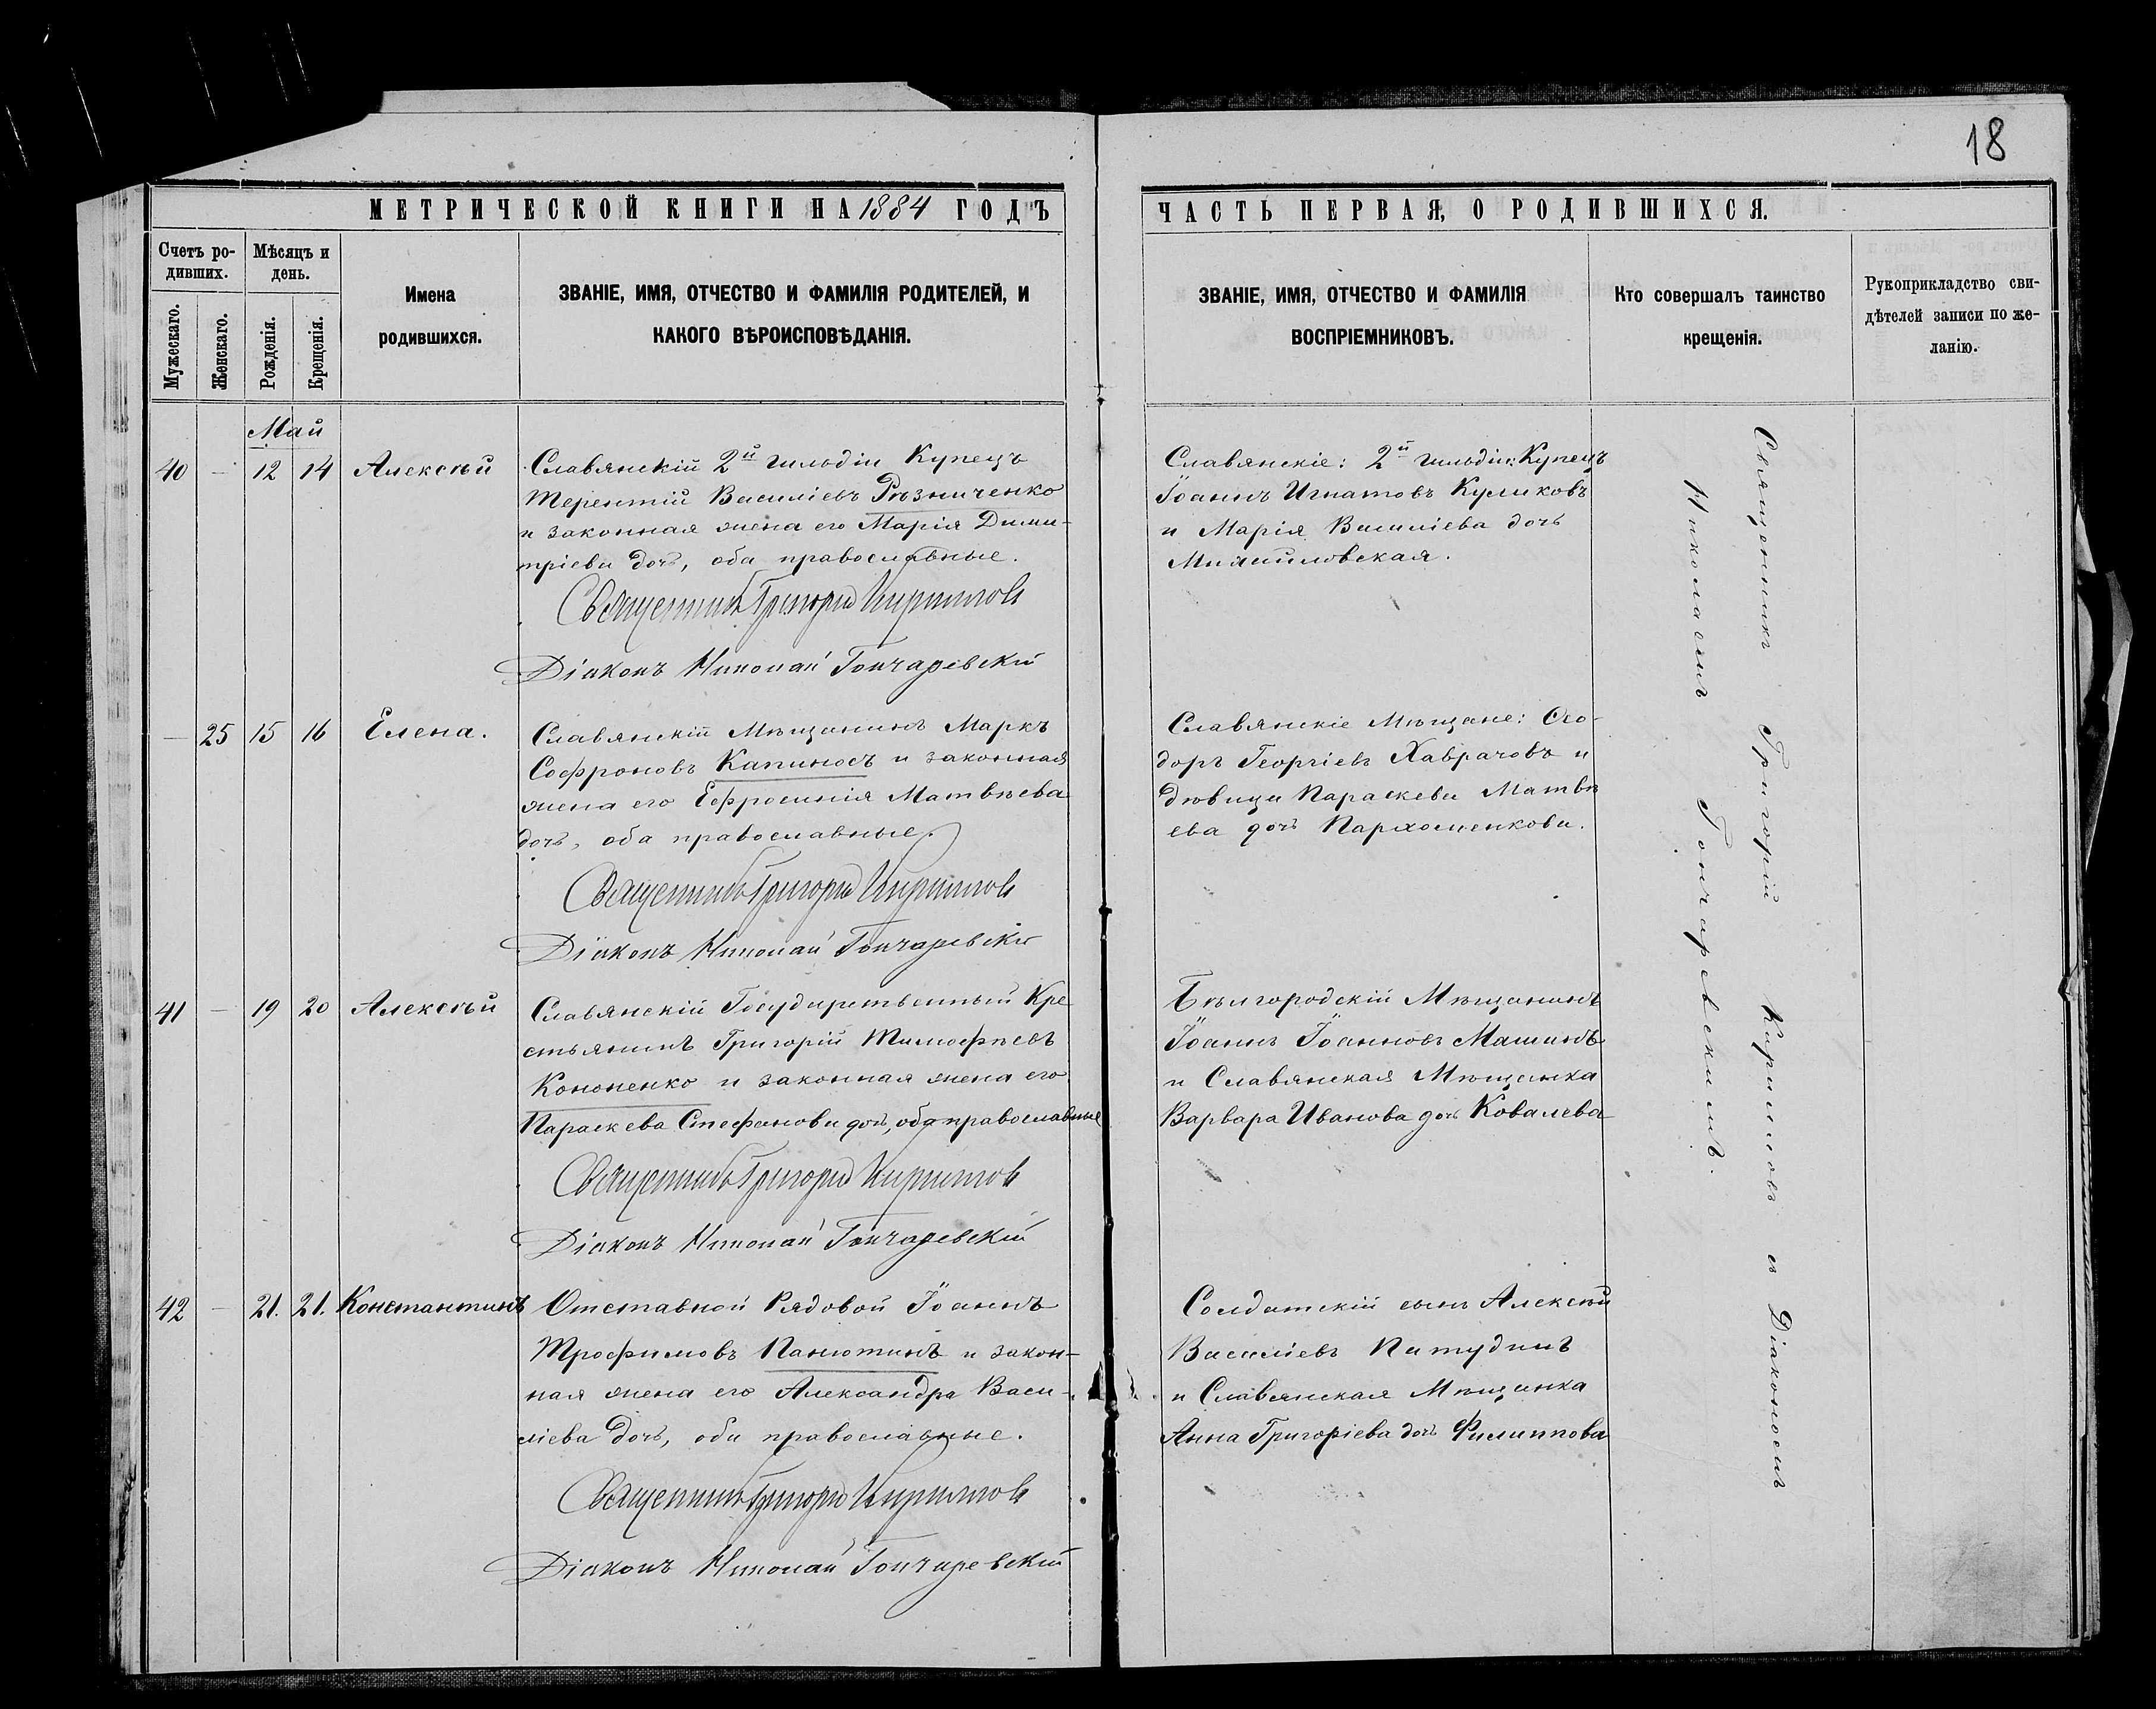 18
МЕТРИЧЕСКОЙ КНИГИ НА 1884 ГОДЪ
Счетъ ро-
дивших.
Мѣсяцъ и
день.
Мужескаго.
Женскаго.
Рожденія.
Крещенія.
Имена
родившихся.
ЗВАНІЕ, ИМЯ, ОТЧЕСТВО И ФАМИЛІЯ РОДИТЕЛЕЙ, И
КАКОГО ВѢРОИСПОВѢДАНІЯ.
Май
40 — 12 14 Алексѣй
Славянскій 2й гильдіи Купецъ
Терентій Василіевъ Рѣзниченко
и законная жена его Марія Дими-
тріева дочь, оба православные.
Священникъ Григорій Кирилловъ
Діаконъ Николай Гончаревскій
— 25 15 16 Елена.
Славянскій Мѣщанинъ Маркъ
Софроновъ Капиносъ и законная
жена его Ефросинія Матвѣева
дочь, оба православные.
Священникъ Григорій Кирилловъ
Діаконъ Николай Гончаревскій
41 — 19 20 Алексѣй
Славянскій Государственный Кре-
стьянинъ Григорій Тимофѣевъ
Кононенко и законная жена его
Параскева Стефанова дочь, оба православные
Священникъ Григорій Кирилловъ
Діаконъ Николай Гончаревскій
42 — 21. 21. Константинъ
Отставной Рядовой Іоаннъ
Трофимовъ Панютинъ и закон-
ная жена его Александра Васи-
ліева дочь, оба православные.
Священникъ Григорій Кирилловъ
Діаконъ Николай Гончаревскій
ЧАСТЬ ПЕРВАЯ, О РОДИВШИХСЯ.
ЗВАНІЕ, ИМЯ, ОТЧЕСТВО И ФАМИЛІЯ
ВОСПРІЕМНИКОВЪ.
Кто совершалъ таинство
крещенія.
Рукоприкладство сви-
дѣтелей записи по же-
ланію.
Славянскіе: 2й гильдіи: Купецъ
Іоаннъ Игнатовъ Куликовъ
и Марія Василіева дочь
Михайловская.
Славянскіе Мѣщане: Ѳео-
доръ Георгіевъ Хаврачовъ и
дѣвица Параскева Матвѣ
ева дочь Пархоменкова.
Бѣлгородскій Мѣщанинъ
Іоаннъ Іоанновъ Машинъ
и Славянская Мѣщанка
Варвара Иванова дочь Ковалева
Солдатскій сынъ Алексѣй
Василіевъ Патудинъ
и Славянская Мѣщанка
Анна Григоріева дочь Филиппова
Священникъ Григорій Кирилловъ съ Діакономъ
Николаемъ Гончаревскимъ.